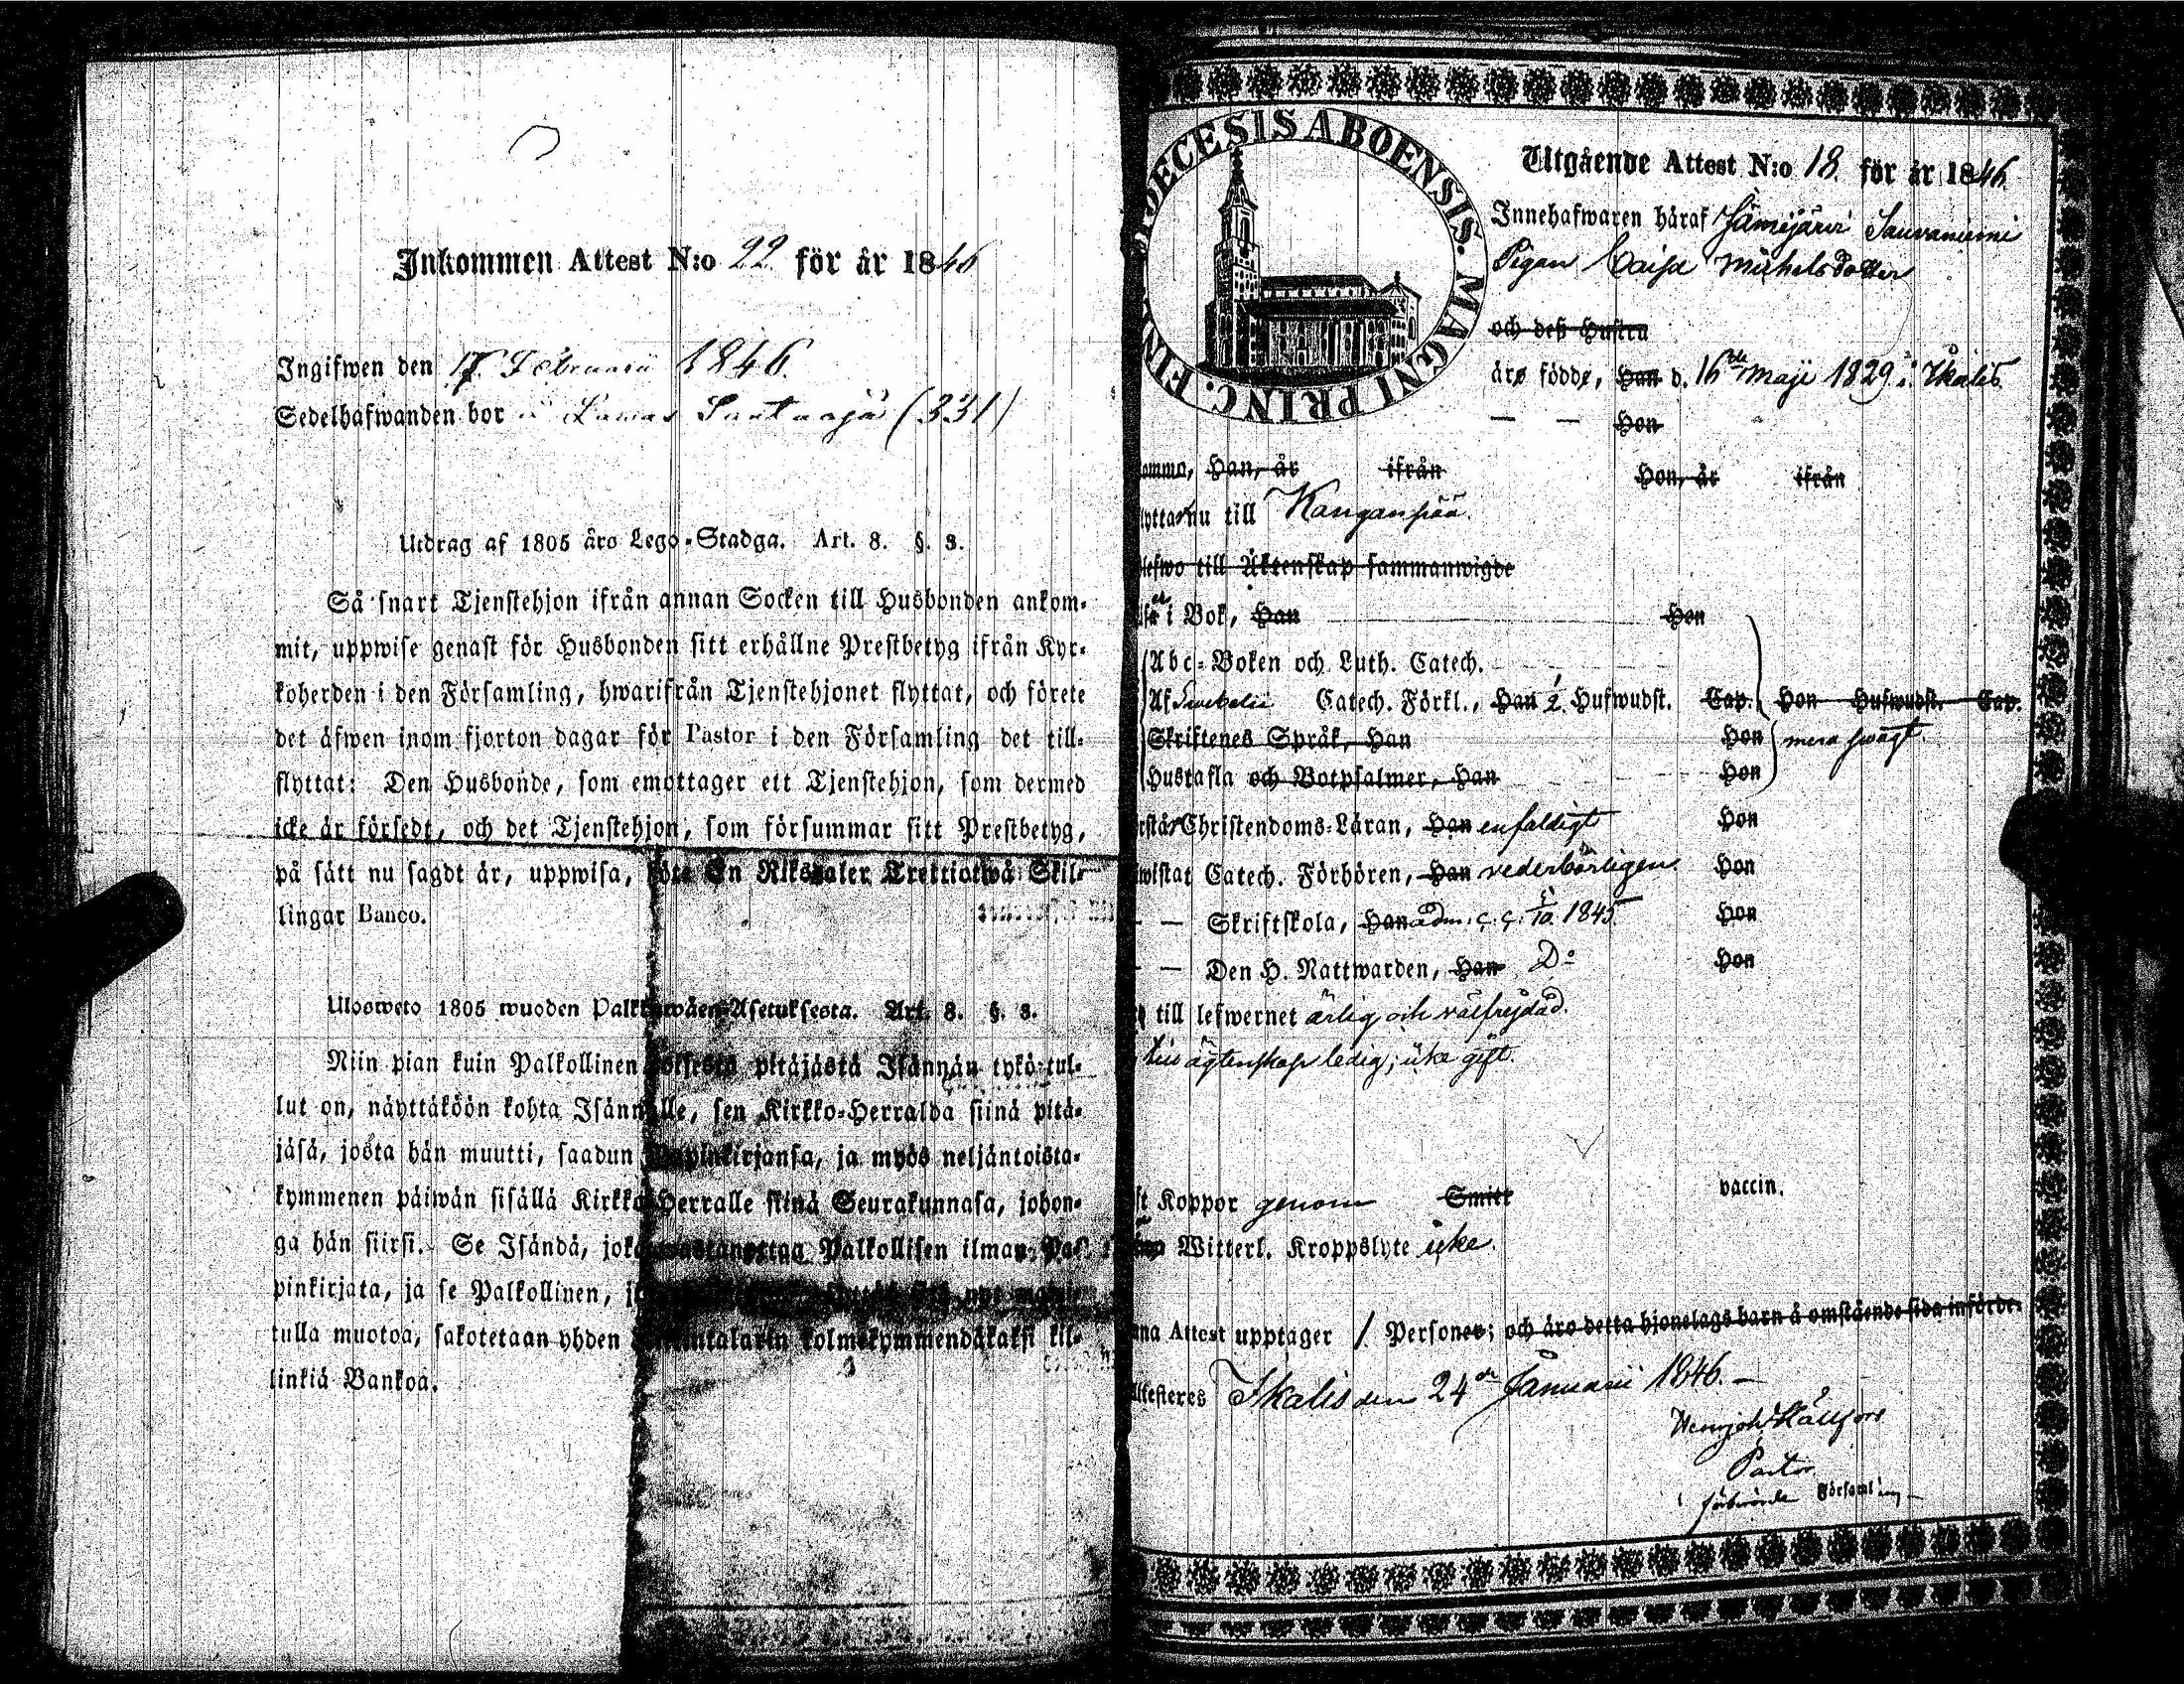 Inkommen Attest N:o 22 för år 1846
Ingifwen den 17. Februarii 1846.
Sedelhafwanden bor i (331)
Utdrag af 1805 års Lego-Stadga. Art. 8. §. 3.
Så snart Tjenstehjon ifrån annan Socken till Husbonden ankom-
mit, uppwise genast för Husbonden sitt erhållne Prestbetyg ifrån Kyr-
koherden i den Församling, hwarifrån Tjenstehjonet flyttat, och förete
det äfwen inom fjorton dagar för Pastor i den Församling det till-
flyttat: Den Husbonde, som emottager ett Tjenstehjon, som dermed
icke är försedt, och det Tjenstehjon, som försummar sitt Prestbetyg,
på sätt nu sagdt är, uppwisa, böte En Riksdaler Trettiotwå Skil-
lingar Banco.
Ulosweto 1805 wuoden Palkkawäen-Asetuksesta. Art. 8. §. 3.
Niin pian kuin Palkollinen toisesta pitäjästä Isännän tykö tul-
lut on, näyttäköön kohta Isännälle, sen Kirkko-Herralda siinä pitä-
jäsä, josta hän muutti, saadun Papinkirjansa, ja myös neljäntoista-
kymmenen päiwän sisällä Kirkko-Herralle siinä Seurakunnasa, johon-
ga hän siirsi. Se Isändä, joka wastanottaa Palkollisen ilman Pa-
pinkirjata, ja se Palkollinen,
tulla muotoa, sakotetaan yhden kolmekymmendäkaksi kil-
linkiä Bankoa.
DIŒCESIS ABOENSIS. MAGNI PRINC. FINL.
Utgående Attest N:o 18. för år 1846.
Innehafwaren häraf Jämijärvi Sauvaniemi
Pigan Caisa Michelsdotter
och deß Hustru
äro födde, Han d. 16de Maji 1829 i Ikalis.
— — Hon
komma, Han, år ifrån Hon, år ifrån
flyttar nu till Kanganpää.
blefwo till Äktenskap sammanwigde
i Bok, Han Hon
Abc-Boken och Luth. Catech.
Af Svebelii Catech. Förkl., Han 2. Hufwudst. Cap. Hon Hufwudst. Cap.
Skriftenes Språk, Han Hon mera svagt.
Hustafla och Botpsalmer, Han Hon
förstår Christendoms-Läran, Han enfaldigt Hon
bewistat Catech. Förhören, Han vederbörligen. Hon
— — Skriftskola, Han adm. 1845. Hon
— — Den H. Nattwarden, Han Do Hon
till lefwernet ärlig och välfrejdad.
till ägtenskap ledig; icke gift.
Koppor genom Smitt vaccin.
Witterl. Kroppslyte icke.
Denna Attest upptager 1. Personer; och äro detta hjonelags barn å omstående sida införde.
Attesteres Ikalis den 24de Januarii 1846. —
Pastor
i förberörde Församling —